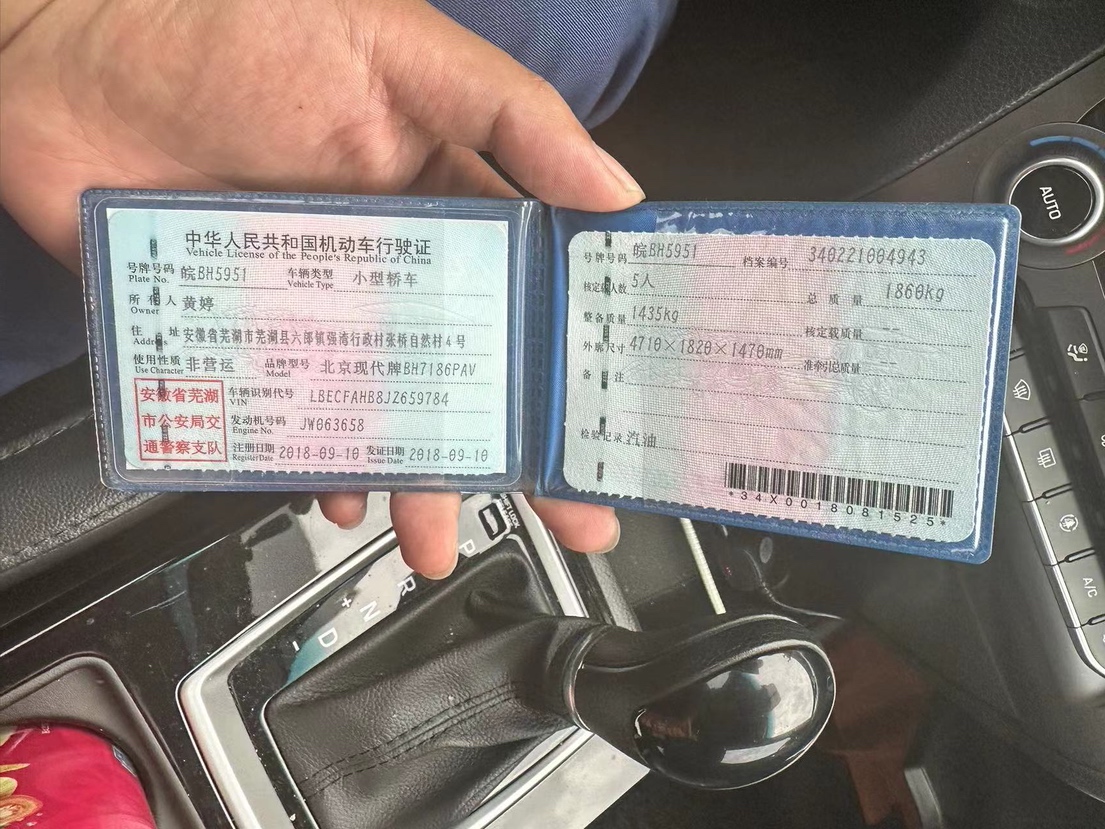 中华人民共和国机动车行驶证
Vehicle License of the People's Republic of China
号牌号码 皖BH5951 车辆类型 小型轿车
Plate No. Vehicle Type
所有人 黄婷
Owner
住址 安徽省芜湖市芜湖县六郎镇强湾行政村张桥自然村4号
Address
使用性质 非营运 品牌型号 北京现代牌BH7186PAV
Use Character Model
安徽省芜湖
市公安局交
通警察支队
车辆识别代号 LBECFAHB8JZ659784
VIN
发动机号码 JW063658
Engine No.
注册日期 2018-09-10 发证日期 2018-09-10
Register Date Issue Date
号牌号码 皖BH5951 档案编号 340221004943
核定载人数 5人 总质量 1860kg
整备质量 1435kg 核定载质量 --
外廓尺寸 4710×1820×1470mm 准牵引总质量
备注
检验记录 汽油
*34X0018081525*
AUTO
A/C
P
R
N
D
+
-